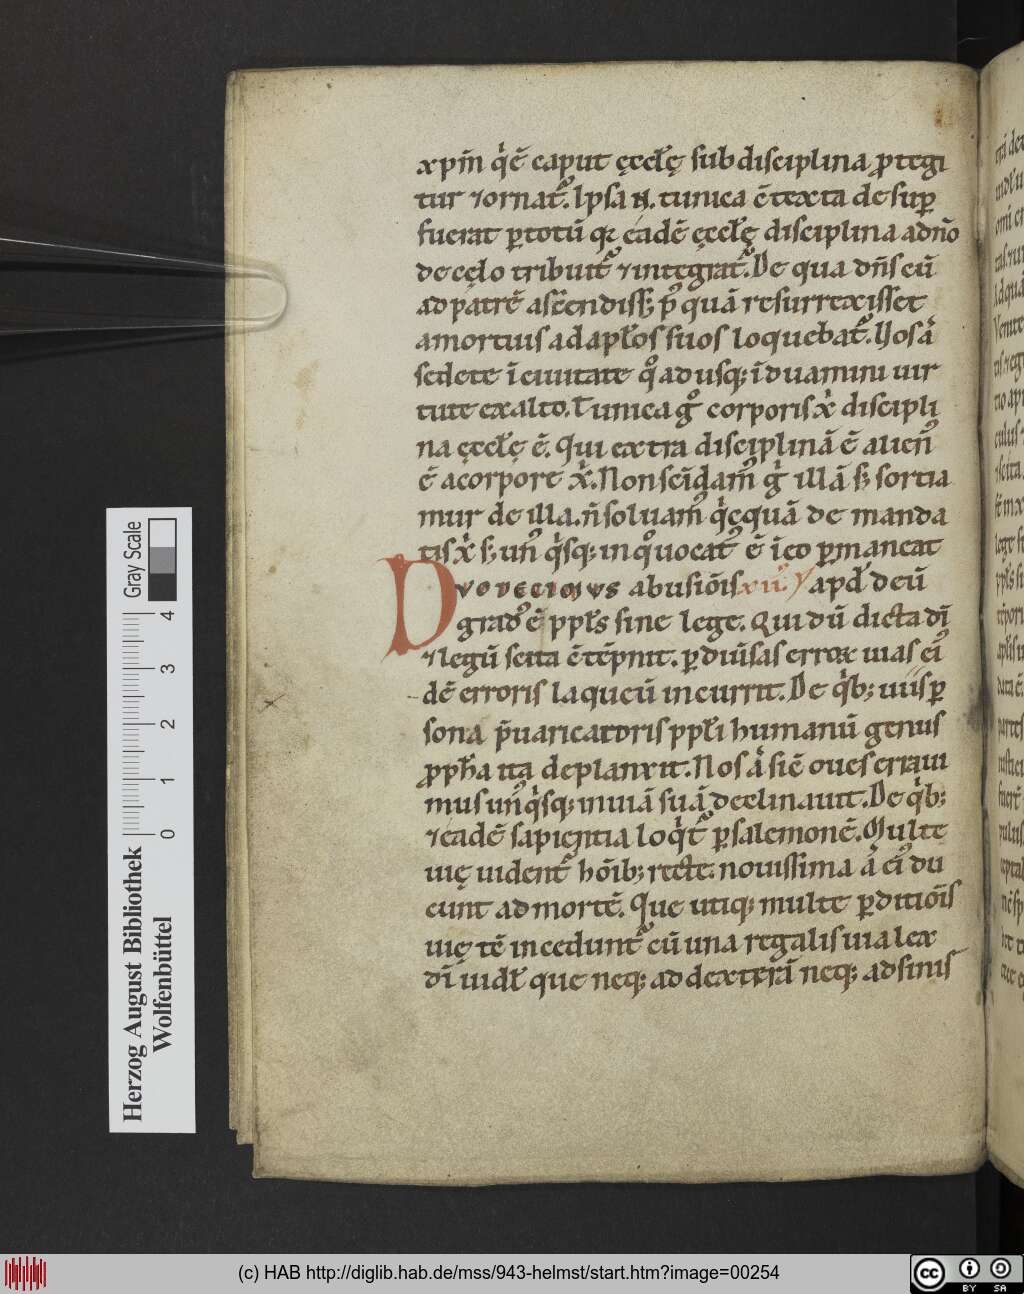 xpm̄ q̇ ē caput ęccłę sub disciplina ꝓtegi
tur ⁊ ornat᷑. Ipsa n̄. tunica ē texta de sup̱
fuerat ꝑ totū q̱ eadē ęccłę disciplina a dño
de cęlo tribuit᷑ ⁊ integrat᷑. De qua dñs cū
ad patrē ascendiss& pꝰ quā resurrexisset
a mortuis ad apłos suos loquebat᷑. Uos à
sedete ī ciuitate qͦ ad usq; īduamini uir
tute ex alto. Tunica gͦ corporis x̓ discipli
na ęccłę ē. Qui extra disciplinā ē alienꝰ
ē a corpore x̓. Non scīdamꝰ ġ illā s; sortia
mur de illa. n̄ soluamꝰ q̇cquā de manda
tis x̓ s; unꝰ q̇sq; in qͦ uocatꝰ ē ī eo ꝑmaneat
DVODECIMVS abusiōis xii gradꝰ ē
ppłs sine lege. Qui dū dicta dī
⁊ legū scita cōtēpnit. ꝑ diūsas erroꝝ uias eiꝰ
dē erroris laqueū incurrit. De q̇b; uiis ꝑ
sona p̄uaricatoris ppłi humanū genus
ꝓpħa ita deplanxit. Nos à sic̄ oues erraui
mus unꝰ q̇sq; in uiā suā declinauit. De q̇b;
⁊ eadē sapientia loq̇t᷑ ꝑ salemonē. Multe
uię uident᷑ hōib; recte. nouissima à eiꝰ du
cunt ad mortē. Que utiq; multe ꝑditiōis
uię tē incedunt᷑ cū una regalis uia lex
dī uidł que neq; ad dexterā neq; ad sinis
Herzog August Bibliothek
Wolfenbüttel
0 1 2 3 4
Gray Scale
(c) HAB http://diglib.hab.de/mss/943-helmst/start.htm?image=00254
cc BY SA